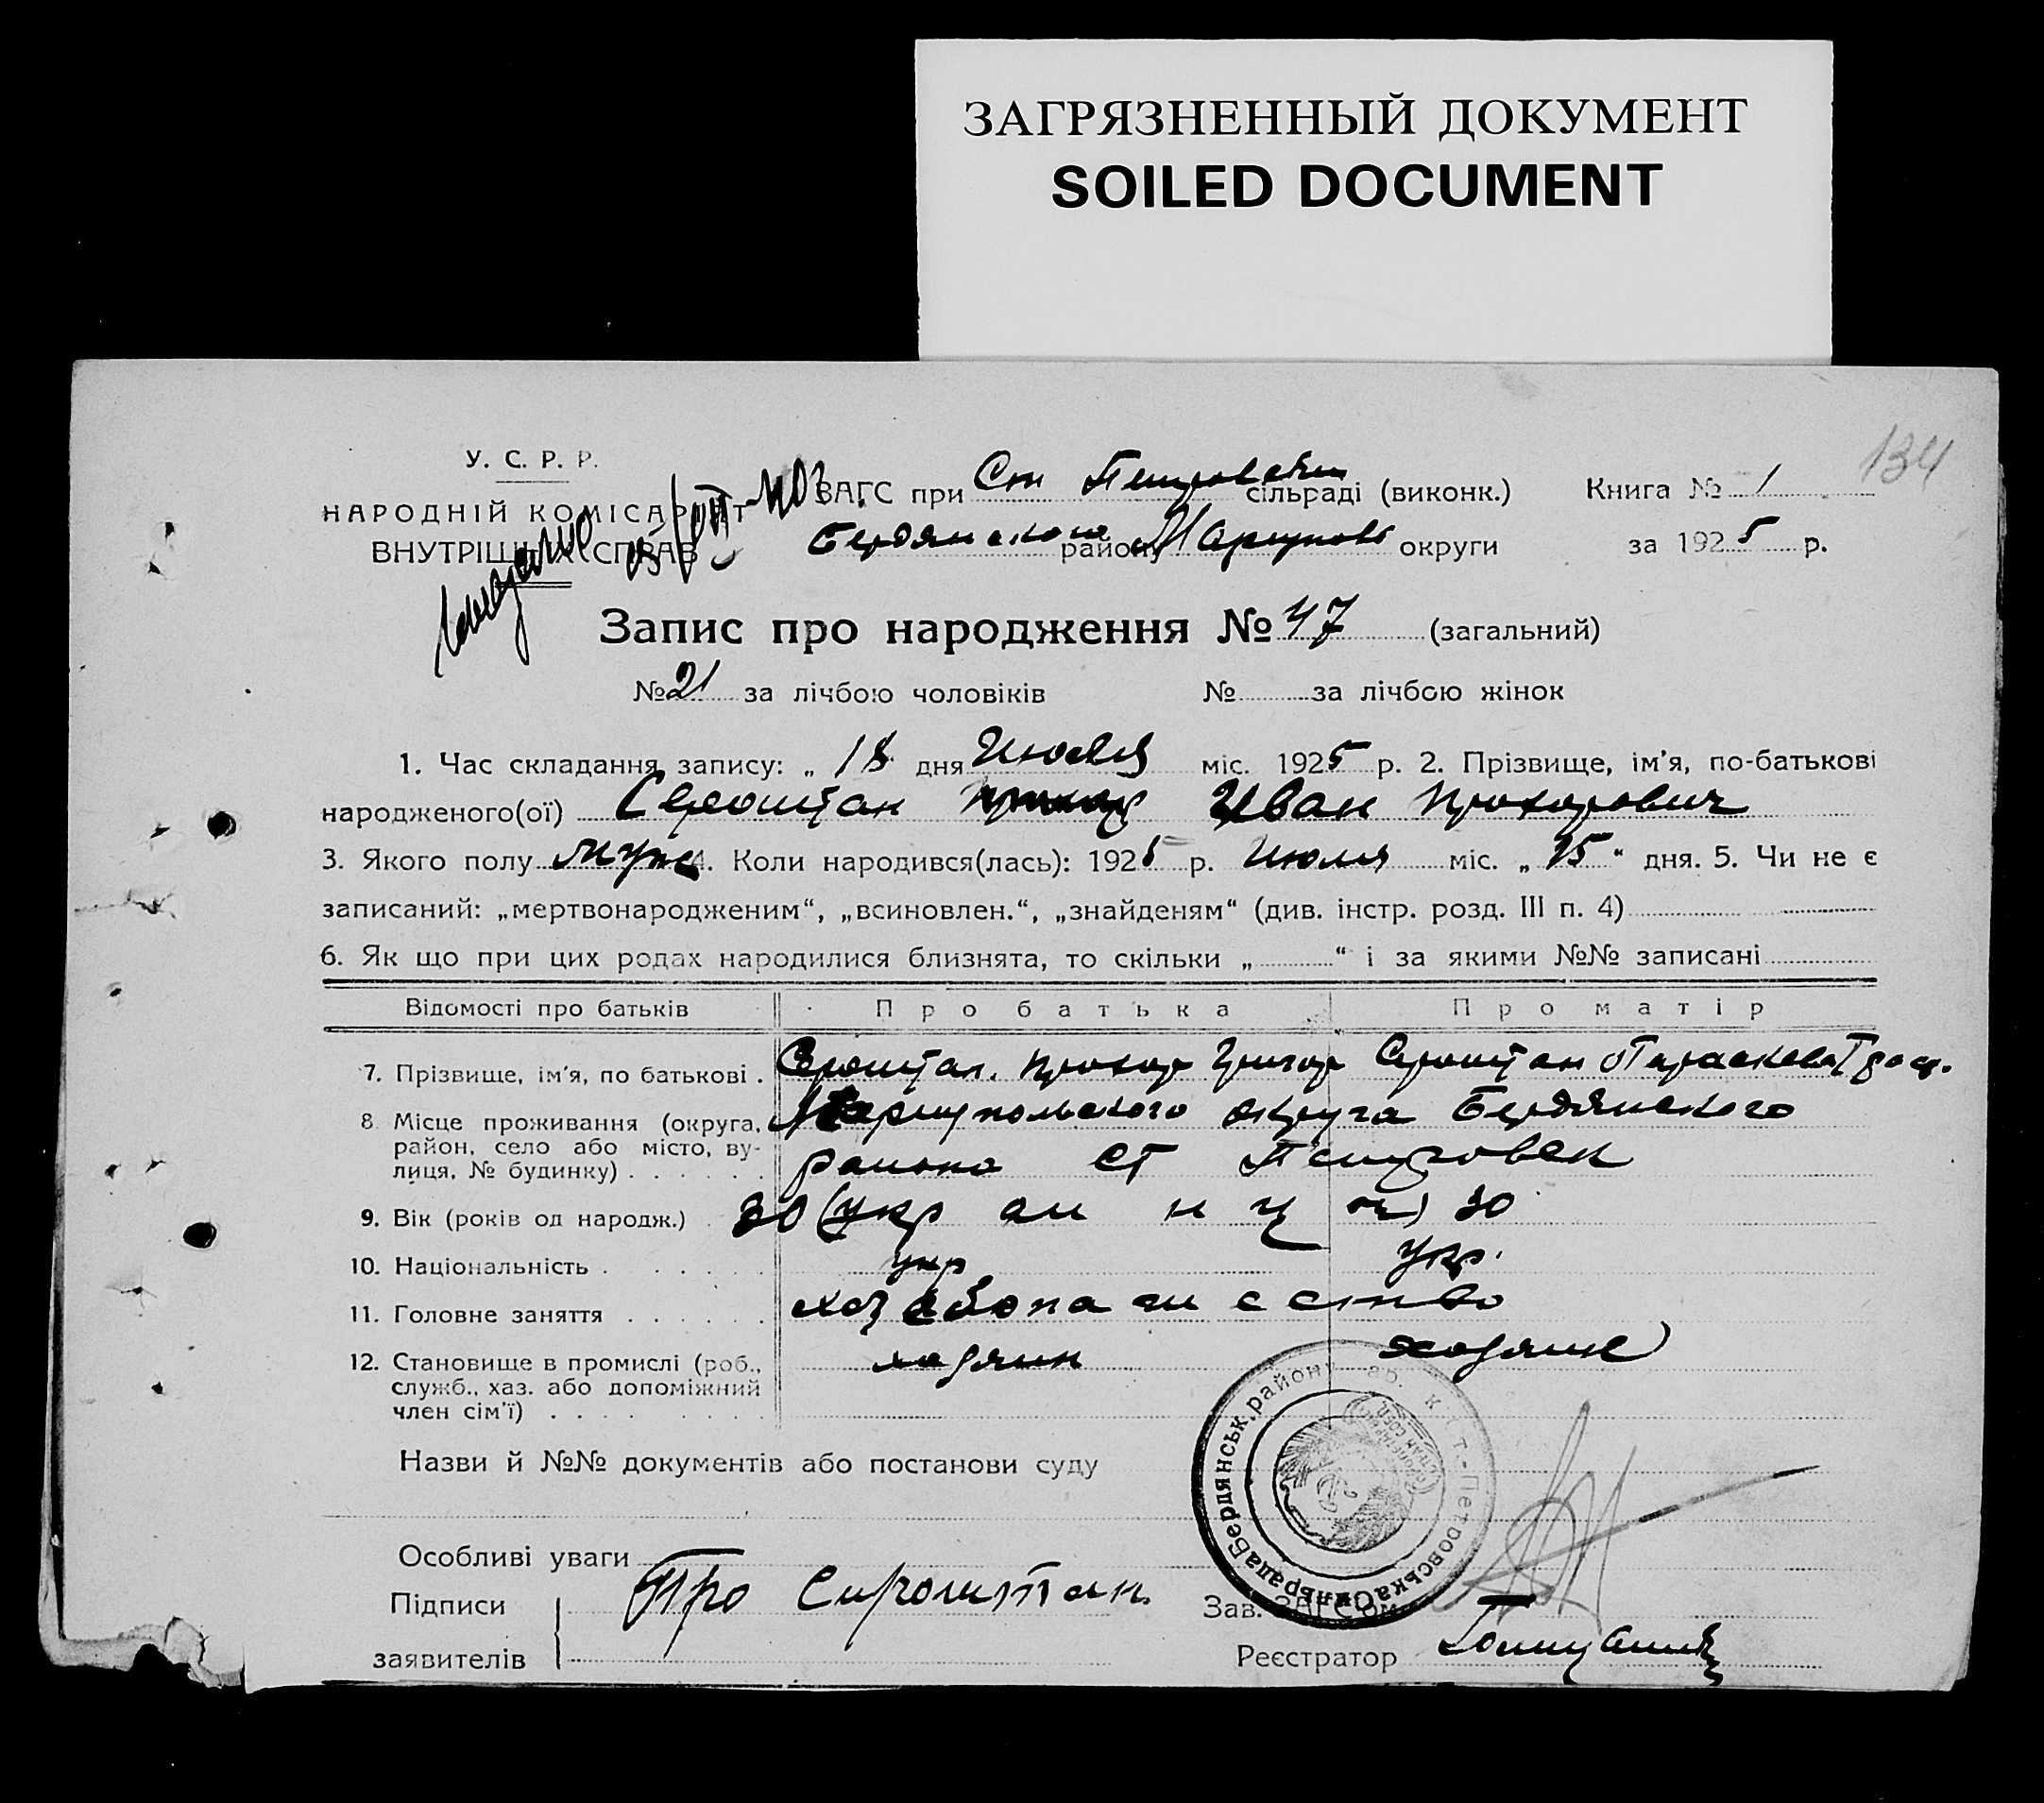 ЗАГРЯЗНЕННЫЙ ДОКУМЕНТ
SOILED DOCUMENT
134
У. С. Р. Р.
НАРОДНІЙ КОМІСАРІЯТ
ВНУТРІШНІХ СПРАВ
ЗАГС при Ст Петровській сільраді (виконк.) Книга № 1
Бердянского району Мариуполь округи за 1925 р.
Запис про народження № 47 (загальний)
№ 21 за лічбою чоловіків № за лічбою жінок
1. Час складання запису: „ 18 дня Июля міс. 1925 р. 2. Прізвище, ім'я, по-батькові
народженого(ої) Сероштан Иван Прохорович
3. Якого полу муж 4. Коли народився(лась): 1925 р. Июля міс. „ 15 “ дня. 5. Чи не є
записаний: „мертвонародженим“, „всиновлен.“, „знайденям“ (див. інстр. розд. III п. 4)
6. Як що при цих родах народилися близнята, то скільки „ “ і за якими №№ записані
Відомості про батьків Про батька Про матір
7. Прізвище, ім'я, по батькові . Сероштан. Прохор Григор Сероштан Параскева
8. Місце проживання (округа, Мариупольского округа Бердянского
район, село або місто, ву-
лиця, № будинку) . . . . . . района ст Петровск
9. Вік (років од народж.) . 30 30
10. Національність . . . . . . укр укр.
11. Головне заняття . . . . . . хлебопашество
12. Становище в промислі (роб., хазяин хозяике
служб., хаз. або допоміжний
член сім'ї) . . . .
Назви й №№ документів або постанови суду
Бердянськ. району
Петровська Сільрада
Особливі уваги
Підписи Про Сироштан
Зав. ЗАГС'ом
заявителів
Реєстратор